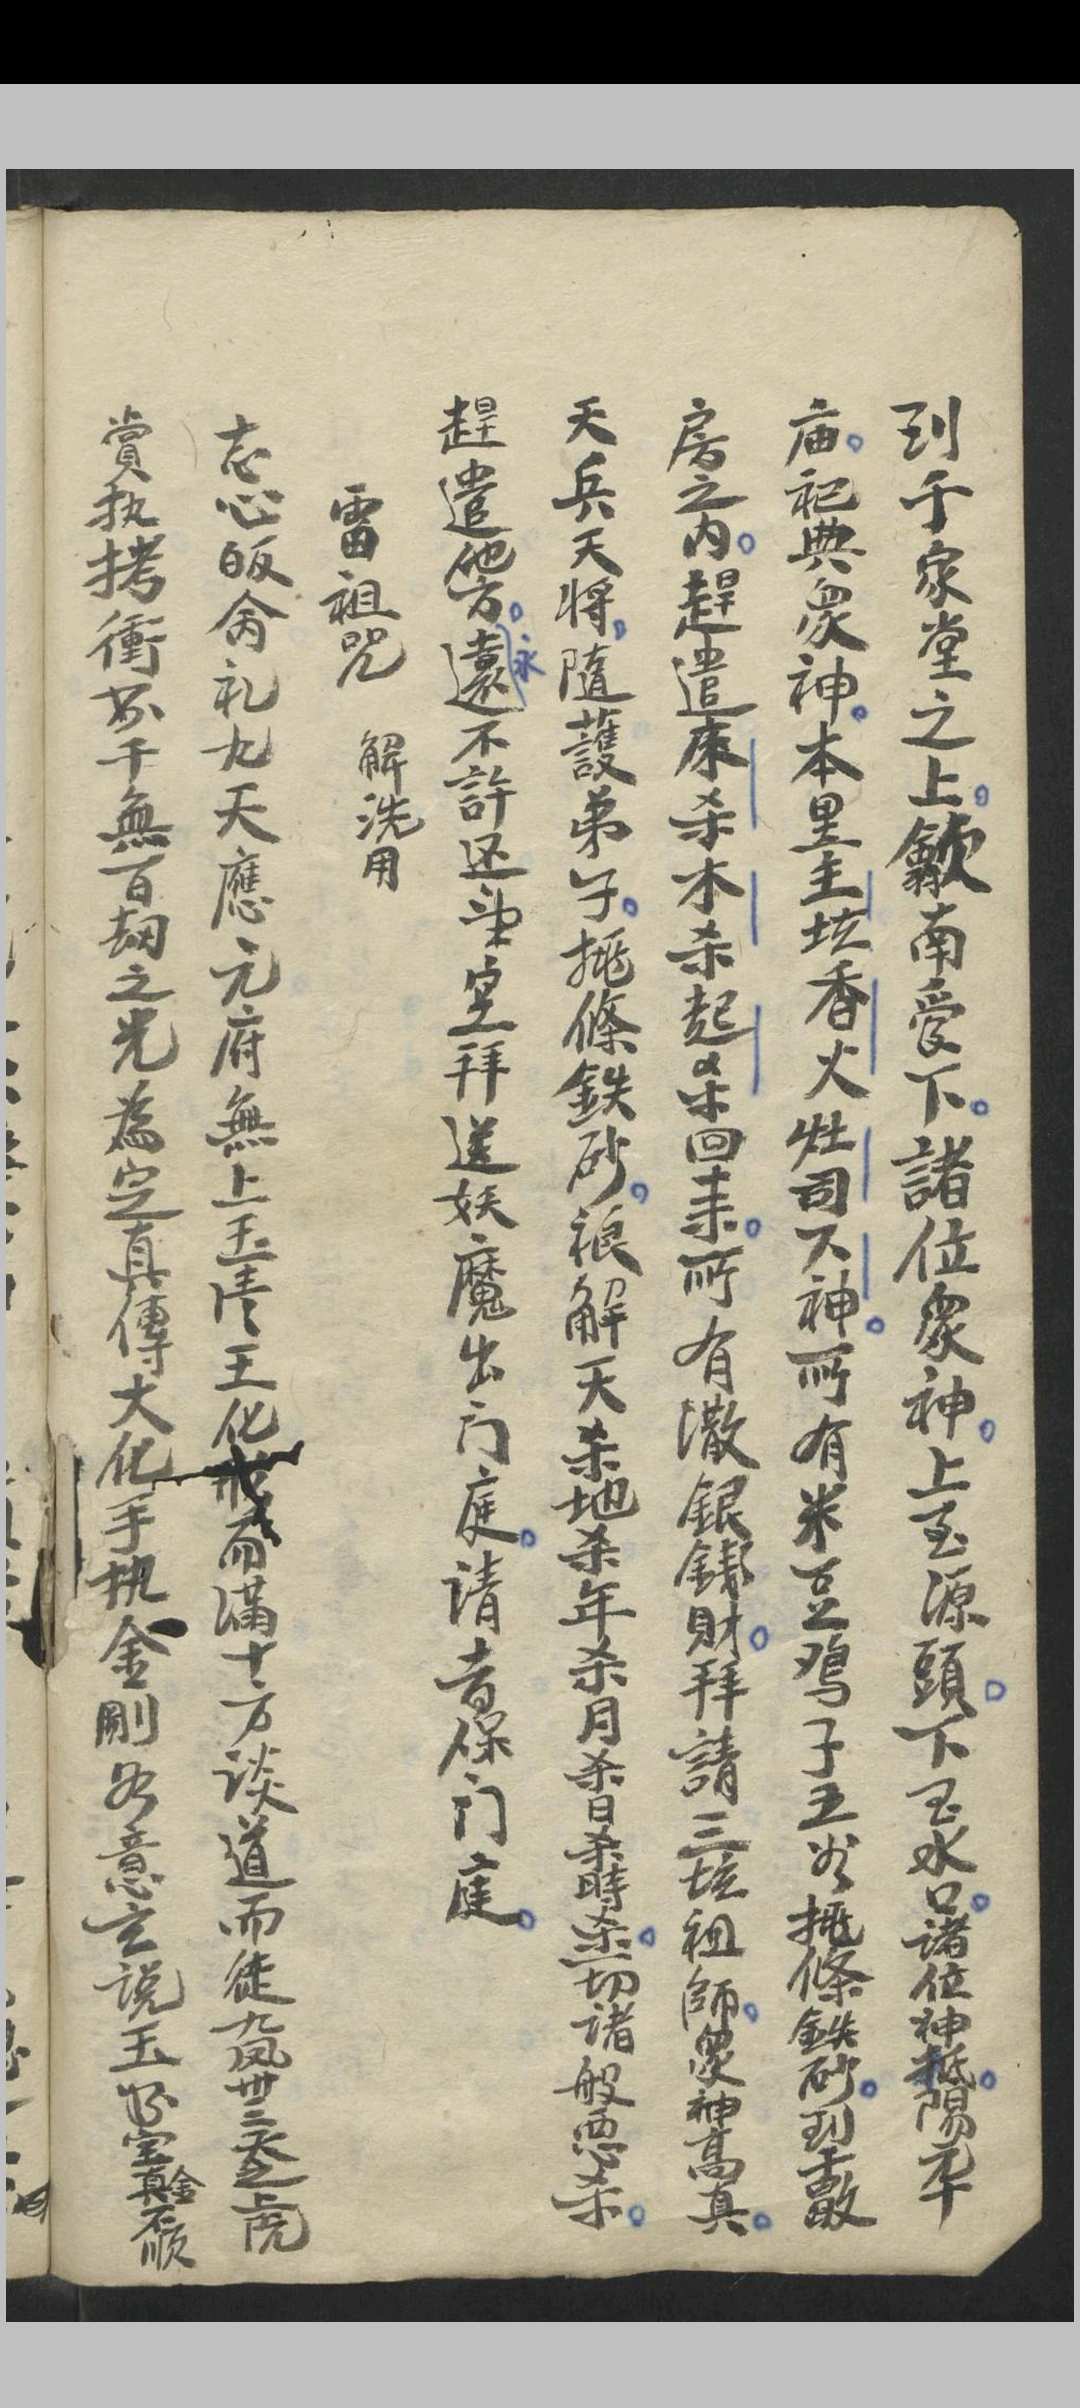 到于家堂之上。歆南受下。諸位衆神。上至源頭。下至水口。諸位神祗。陽元十
庙。祀典衆神。本里主坛香火灶司六神。所有米豆鸡子五谷挑條鉄砂。到于敝
房之内。趕遣床杀本杀起杀回耒。所有潵銀錢財。拜請三坛祖師。衆神高真。
天兵天将。隨護弟子。挑條鉄砂。禳解天杀地杀年杀月杀日杀時杀。一切诸般惡杀。
趕遣他方。永遠不許还 空拜送妖魔出门庭。请者保门庭。
雷祖咒 解洗用
志心皈命礼九天應元府無上玉清王化 而滿十方谈道而徒九凤卅三天之上虎
賞执拷衝 千無百劫之光為定真傳大化手执金剛 意玄说玉 室真金不順